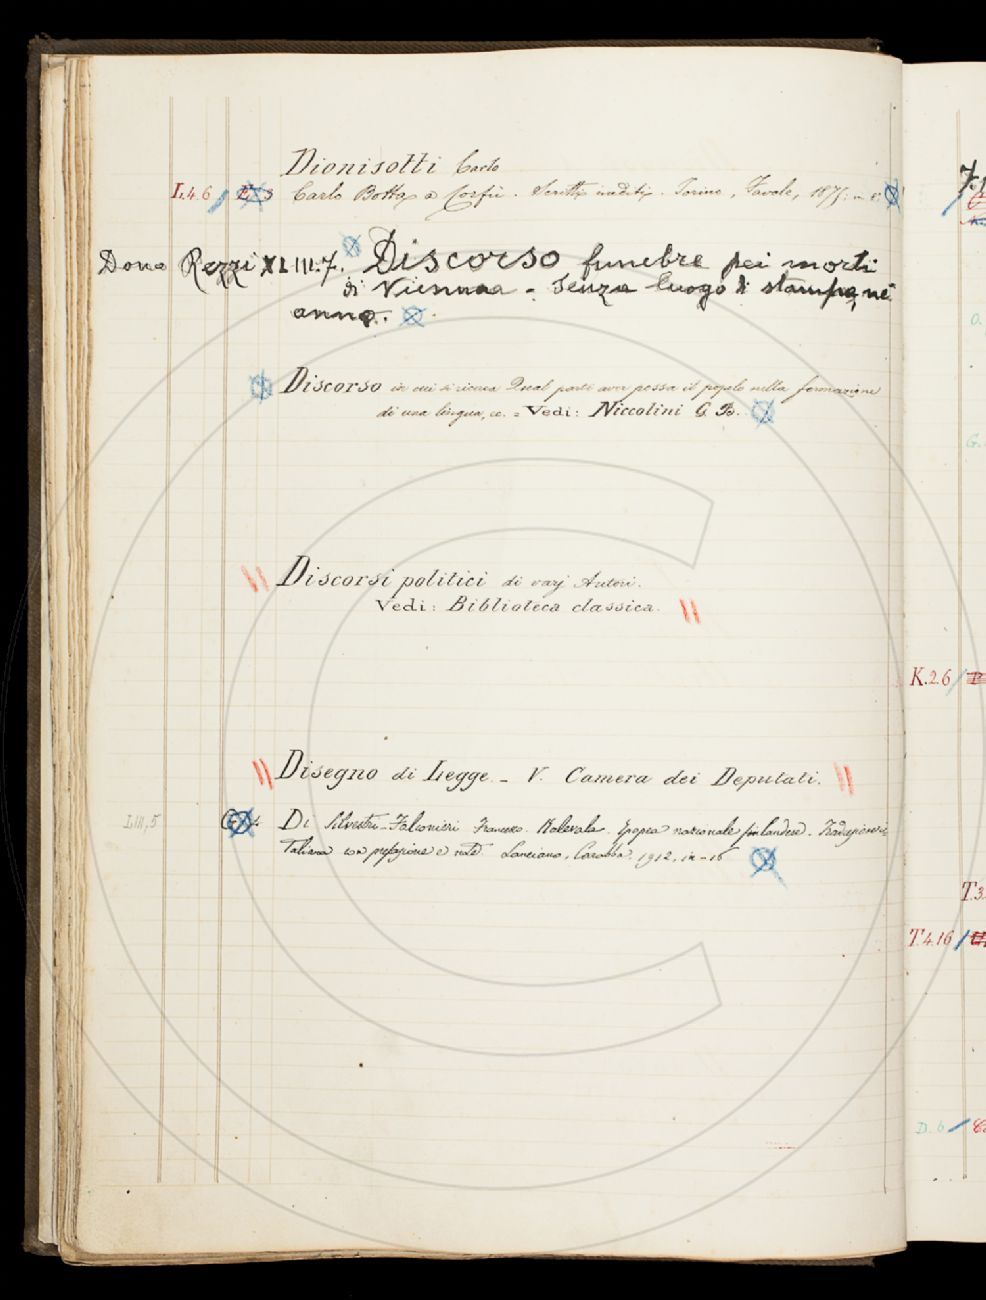 Dionisotti Carlo
L.4.6 / Carlo Botta a Corfù. Scritti inediti. Torino, Favale, 1875. in 8°
Dono Rezzi XLIII.7. Discorso funebre pei morti
di Vienna - Senza luogo di stampa, nè
anno.
Discorso in cui si ricerca Qual parte aver possa il popolo nella formazione
di una lingua, ec. = Vedi: Niccolini G. B.
Discorsi politici di varj Autori.
Vedi: Biblioteca classica.
Disegno di Legge - V. Camera dei Deputati.
LIII,5 Di Silvestri-Falconieri Francesco. Kalevala. Epopea nazionale finlandese. Traduzione i
taliana con prefazione e note. Lanciano, Carabba. 1912. in-16
K.2.6 /
T.3.
T.4.16 /
D.6 /